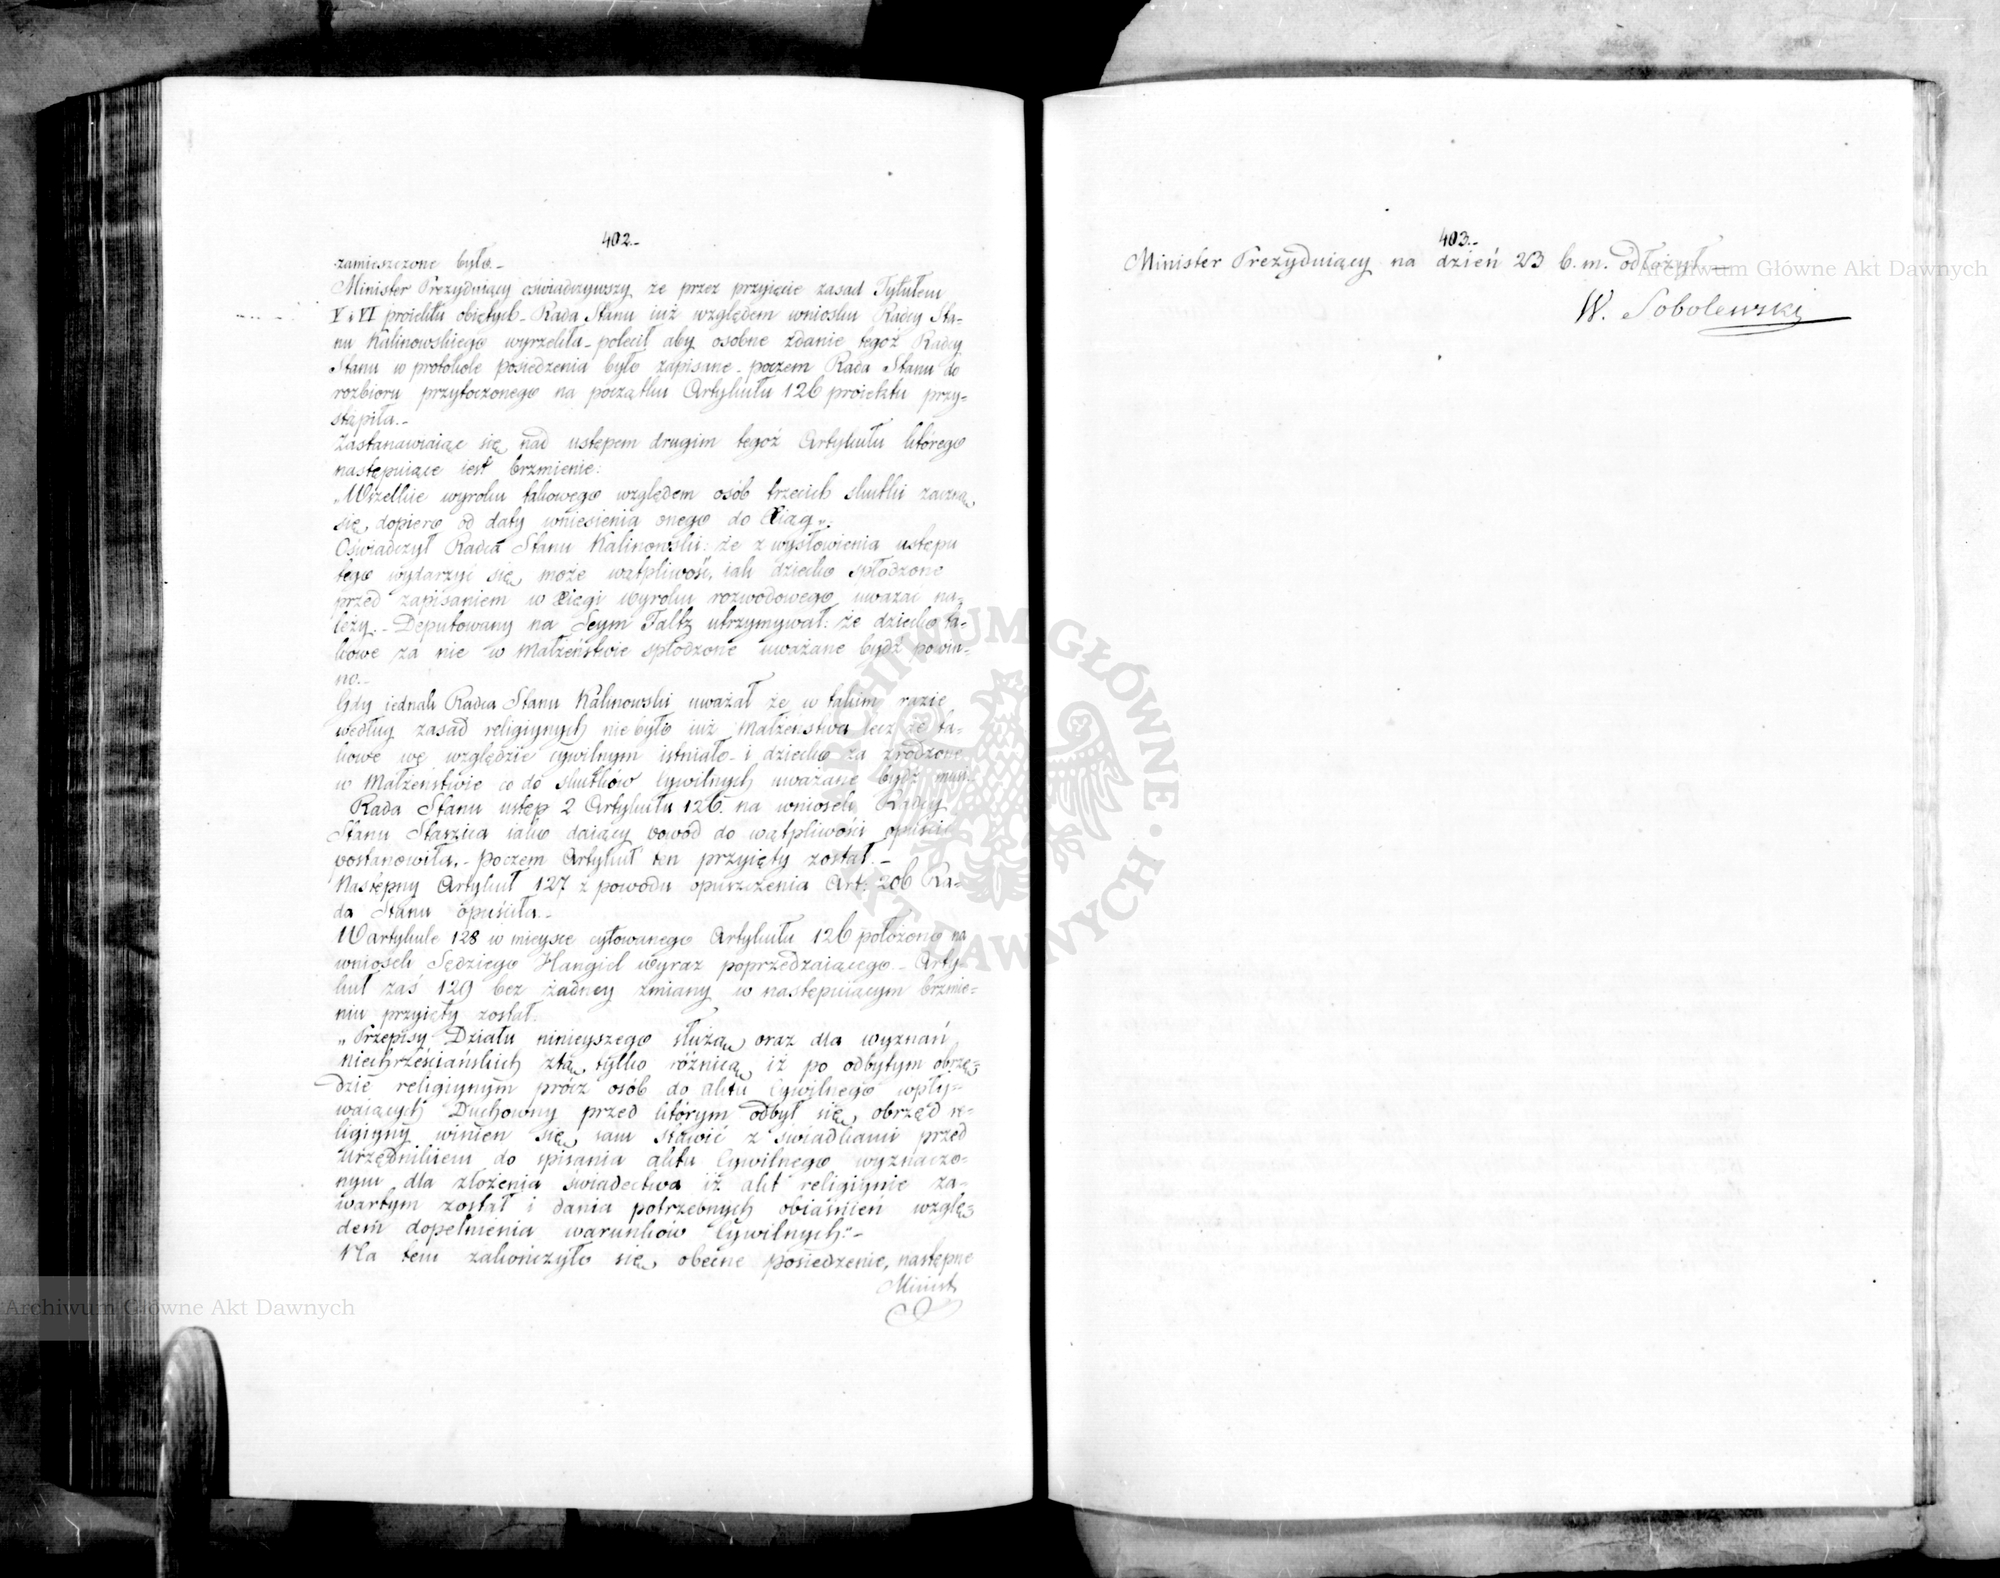 402.-
zamieszczone było_
Minister Prezyduiący oświadczywszy że przez przyięcie zasad Tytułem
V i VI proiektu obiętych_ Rada Stanu iuż względem wniosku Radcy Sta-
nu Kalinowskiego wyrzekła_ polecił aby osobne zdanie tegoż Radcy
Stanu w protokole posiedzenia było zapisane_ poczem Rada Stanu do
rozbioru przytoczonego na początku Artykułu 126 proiektu przy=
stąpiła._
Zastanawiaiąc się nad ustępem drugim tegoż Artykułu którego
następuiące iest brzmienie:
„Wszelkie wyroku takowego względem osób trzecich skutki zaczną
się dopiero od daty wniesienia onego do Xiąg".
Oświadczył Radca Stanu Kalinowski: że z wysłowienia ustępu
tego wydarzyć się może wątpliwość, iak dziecko spłodzone
przed zapisaniem w Xięgi wyroku rozwodowego uważać na-
leży._ Deputowany na Seym Faltz utrzymywał: że dziecko ta-
kowe za nie w Małżeństwie spłodzone uważane bydź powin-
no._
Gdy iednak Radca Stanu Kalinowski uważał że w takim razie
według zasad religiynych nie było iuż Małżeństwa lecz że ta-
kowe we względzie cywilnym istniało_ i dziecko za zrodzone
w Małżeństwie co do skutków Cywilnych uważane bydź musi_
Rada Stanu ustęp 2 Artykułu 126. na wniosek Radcy
Stanu Staszica iako daiący powód do wątpliwości opuścić
postanowiła._ poczem Artykuł ten przyięty został._
Następny Artykuł 127 z powodu opuszczenia Art: 206 Ra-
da Stanu opuściła._
W artykule 128 w mieysce cytowanego Artykułu 126 położono na
wniosek Sędziego Hangiel wyraz poprzedzaiącego._ Arty-
kuł zaś 129 bez żadney zmiany w następuiącym brzmie=
niu przyięty został.
„Przepisy Działu ninieyszego służą oraz dla wyznań
niechrześciańskich z tą tylko różnicą iż po odbytym obrzę=
dzie religiynym prócz osób do aktu Cywilnego wpły=
waiących Duchowny przed którym odbył się obrzęd re-
ligiyny winien się sam stawić z świadkami przed
Urzędnikiem do spisania aktu Cywilnego wyznaczo-
nym dla złożenia świadectwa iż akt religiynie za-
wartym został i dania potrzebnych obiaśnień wzglę=
dem dopełnienia warunków Cywilnych"_
Na tem zakończyło się obecne posiedzenie, następne
Minist
403.-
Minister Prezyduiący na dzień 23 b. m. odłożył_
W. Sobolewski
Archiwum Główne Akt Dawnych
ARCHIWUM GŁÓWNE · AKT DAWNYCH ·
Archiwum Główne Akt Dawnych